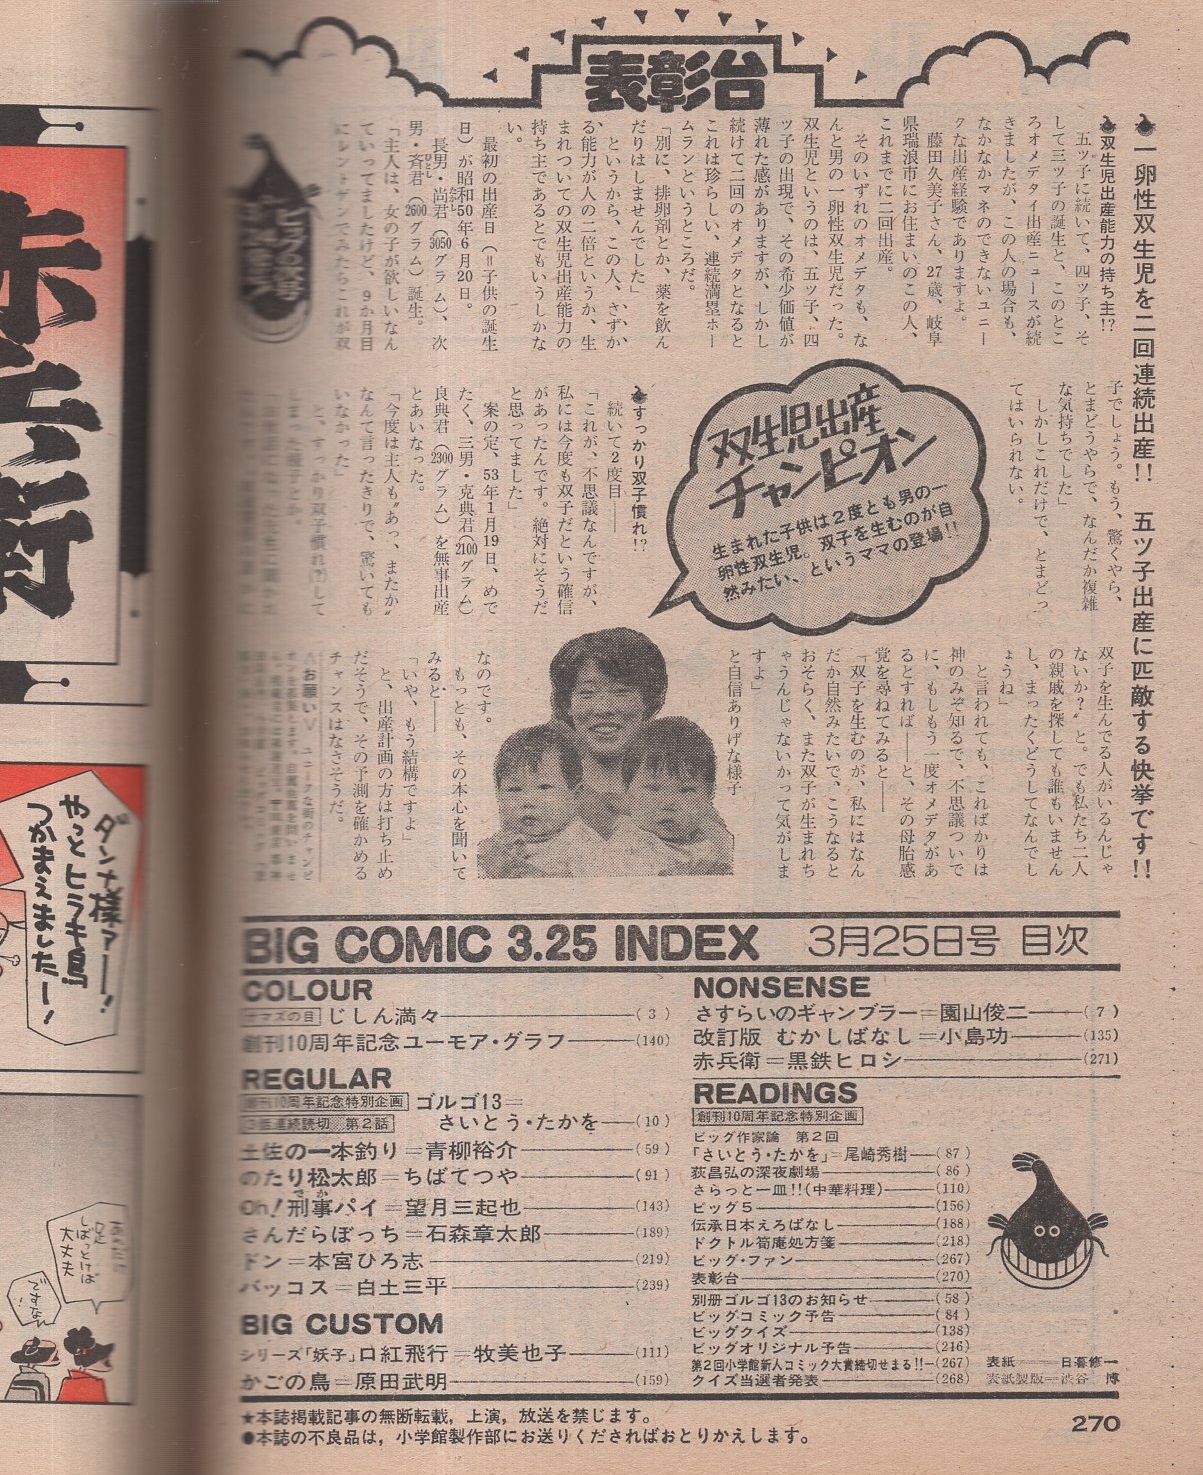 表彰台
一卵性双生児を二回連続出産!! 五ツ子出産に匹敵する快挙です!!
双生児出産能力の持ち主!?
五ツ子に続いて、四ツ子、そ
して三ツ子の誕生と、このとこ
ろオメデタイ出産ニュースが続
きましたが、この人の場合も、
なかなかマネのできないユニー
クな出産経験でありますよ。
藤田久美子さん、27歳、岐阜
県瑞浪市にお住まいのこの人、
これまでに二回出産。
そのいずれのオメデタも、な
んと男の一卵性双生児だった。
双生児というのは、五ツ子、四
ツ子の出現で、その希少価値が
薄れた感がありますが、しかし
続けて二回のオメデタとなると
これは珍らしい、連続満塁ホー
ムランというところだ。
「別に、排卵剤とか、薬を飲ん
だりはしませんでした」
というから、この人、さずか
る能力が人の二倍というか、生
まれついての双生児出産能力の
持ち主であるとでもいうしかな
い。
最初の出産日(=子供の誕生
日)が昭和50年6月20日。
長男・尚君(3050グラム)、次
男・斉君(2600グラム)誕生。
「主人は、女の子が欲しいなん
ていってましたけど、9か月目
にレントゲンでみたらこれが双
子でしょう。もう、驚くやら、
とまどうやらで、なんだか複雑
な気持ちでした」
しかしこれだけで、とまどっ
てはいられない。
双生児出産
チャンピオン
生まれた子供は2度とも男の一
卵性双生児。双子を生むのが自
然みたい、というママの登場!!
すっかり双子慣れ!?
続いて2度目――
「これが、不思議なんですが、
私には今度も双子だという確信
があったんです。絶対にそうだ
と思ってました」
案の定、53年1月19日、めで
たく、三男・克典君(2100グラム)
良典君(2300グラム)を無事出産
とあいなった。
「今度は主人も〝あっ、またか〟
なんて言ったきりで、驚いても
いなかった」
と、すっかり双子慣れ(?)して
しまった様子とか。
双子を生んでる人がいるんじゃ
ないか?〟と。でも私たち二人
の親戚を探しても誰もいません
し、まったくどうしてなんでし
ょうね」
と言われても、こればかりは
神のみぞ知るで、不思議ついで
に、もしもう一度オメデタがあ
るとすれば――と、その母胎感
覚を尋ねてみると――
「双子を生むのが、私にはなん
だか自然みたいで、こうなると
おそらく、また双子が生まれち
ゃうんじゃないかって気がしま
すよ」
と自信ありげな様子
なのです。
もっとも、その本心を聞いて
みると――
「いや、もう結構ですよ」
と、出産計画の方は打ち止め
だそうで、その予測を確かめる
チャンスはなさそうだ。
BIG COMIC 3.25 INDEX 3月25日号 目次
COLOUR
ナマズの目 じしん満々――(3)
創刊10周年記念ユーモア・グラフ――(140)
REGULAR
創刊10周年記念特別企画 ゴルゴ13=
3倍連続読切 第2話 さいとう・たかを――(10)
土佐の一本釣り=青柳裕介――(59)
のたり松太郎=ちばてつや――(91)
Oh!刑事パイ=望月三起也――(143)
さんだらぼっち=石森章太郎――(189)
ドン=本宮ひろ志――(219)
バッコス=白土三平――(239)
BIG CUSTOM
シリーズ「妖子」口紅飛行=牧美也子――(111)
かごの鳥=原田武明――(159)
NONSENSE
さすらいのギャンブラー=園山俊二――(7)
改訂版 むかしばなし=小島功――(135)
赤兵衛=黒鉄ヒロシ――(271)
READINGS
創刊10周年記念特別企画
ビッグ作家論 第2回
「さいとう・たかを」=尾崎秀樹――(87)
荻昌弘の深夜劇場――(86)
さらっと一皿!!(中華料理)――(110)
ビッグ5――(156)
伝承日本えろばなし――(188)
ドクトル筍庵処方箋――(218)
ビッグ・ファン――(267)
表彰台――(270)
別冊ゴルゴ13のお知らせ――(58)
ビッグコミック予告――(84)
ビッグクイズ――(138)
ビッグオリジナル予告――(216)
第2回小学館新人コミック大賞締切せまる!!――(267)
クイズ当選者発表――(268)
表紙――日暮修一
表紙製版=渋谷 博
★本誌掲載記事の無断転載,上演,放送を禁じます。
●本誌の不良品は,小学館製作部にお送りくださればおとりかえします。
270
ダンナ様ァー!
やっとヒラキ鳥
つかまえました!
しばっとけば
大丈夫
ですな